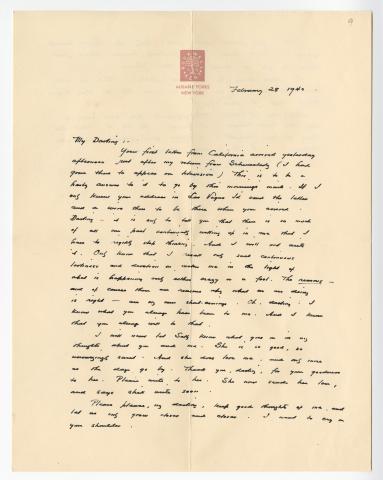 9
MISS NEW YORK
NEW YORK
February 28 1940
My Darling :-
Your first letter from California arrived yesterday
afternoon just after my return from Schenectady (I had
gone there to appear on television) This is to be a
hasty answer to it to go by this mornings mail. If I
only knew your address in Las Vegas I'd send the letter
and a wire there to be there when you arrived.
Darling - it is only to tell you that there is so much
of all our past continuously welling up in me that I
have to rightly stop thinking. And I will not write
it. Only know that I resist only such continuous
tenderness and devotion as makes me in the light of
what is happening only either crazy or a fool. The reasons -
and of course there are reasons why what we are doing
is right - are my own short-comings. Oh, darling, I
know what you always have been to me. And I know
that you always will be that.
I will never let Sally know what goes on in my
thoughts about you and me. She is so good, so
unswervingly sweet. And she does love me, and only more
as the days go by. Thank you, darling, for your goodness
to her. Please write to her. She now sends her love,
and says she'll write soon.
Please, please, my darling, keep good thoughts of me, and
let us only grow closer and closer. I want to cry on
your shoulder.